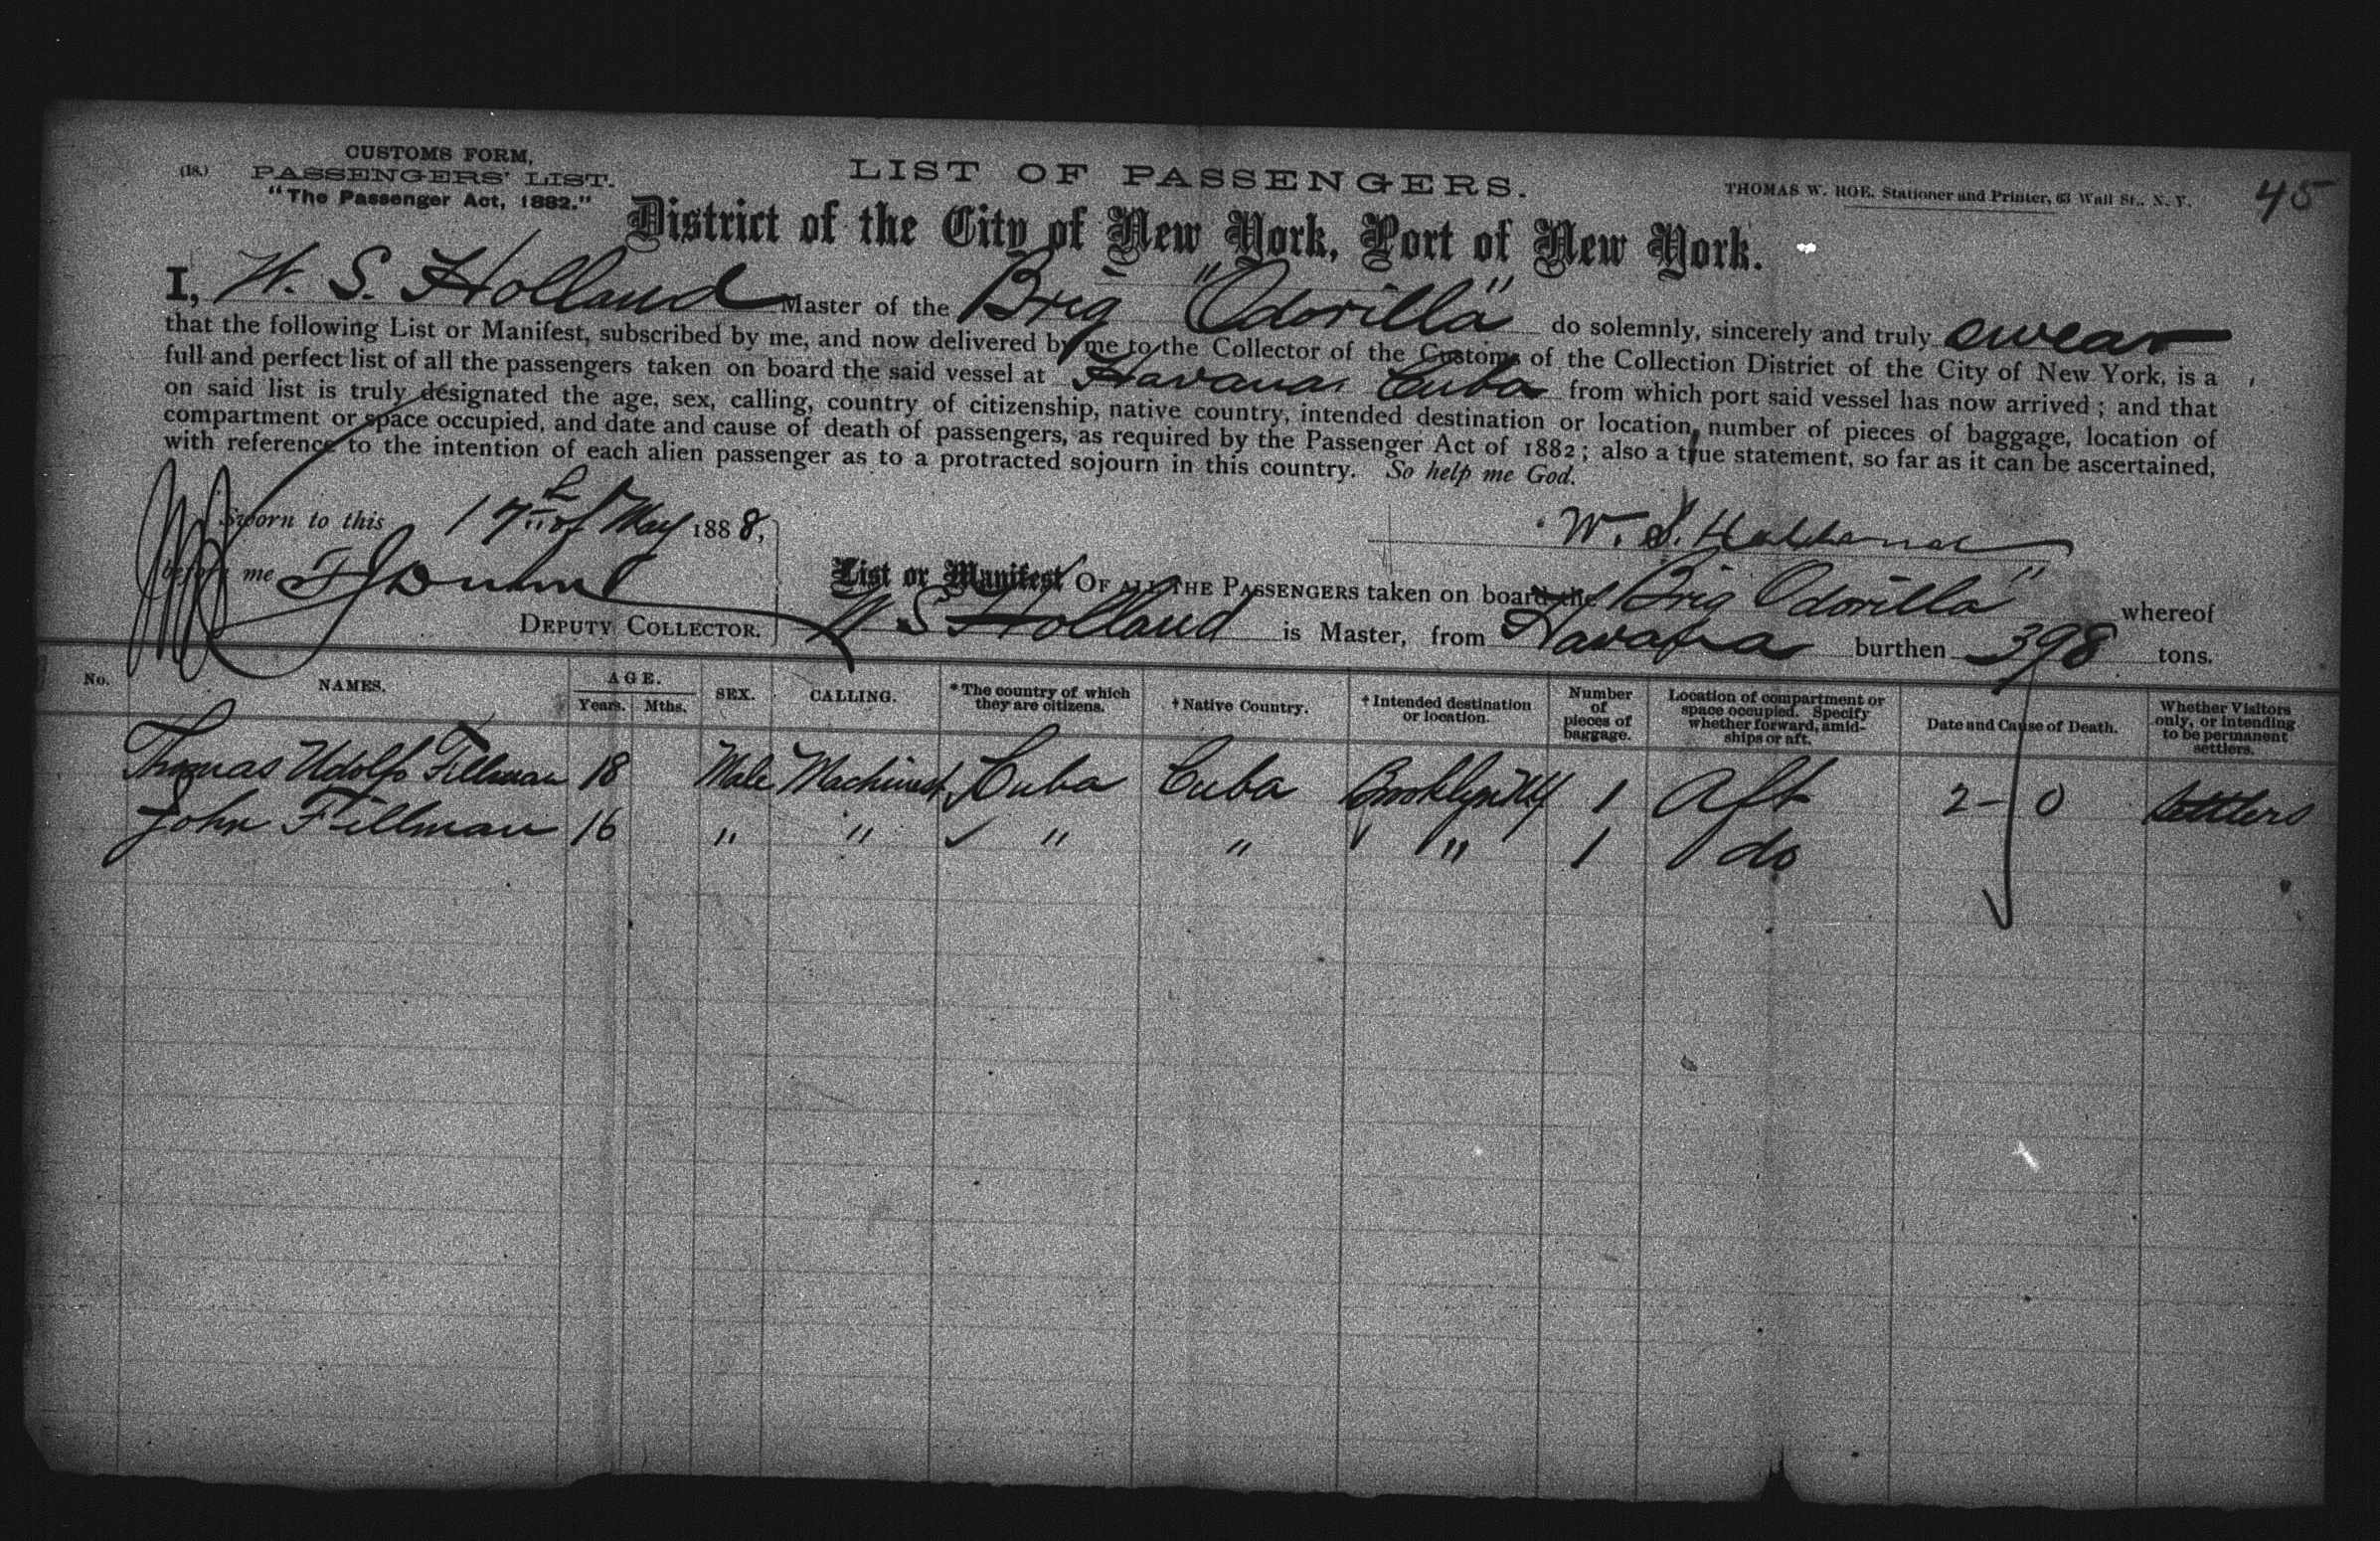 CUSTOMS FORM,
(18.) PASSENGERS' LIST.
"The Passenger Act, 1882."
LIST OF PASSENGERS.
THOMAS W. ROE, Stationer and Printer, 63 Wall St., N. Y.
45
District of the City of New York, Port of New York.
I, W. S. Holland Master of the Brig "Odorilla" do solemnly, sincerely and truly swear
that the following List or Manifest, subscribed by me, and now delivered by me to the Collector of the Customs of the Collection District of the City of New York, is a
full and perfect list of all the passengers taken on board the said vessel at Havana Cuba from which port said vessel has now arrived; and that
on said list is truly designated the age, sex, calling, country of citizenship, native country, intended destination or location, number of pieces of baggage, location of
compartment or space occupied, and date and cause of death of passengers, as required by the Passenger Act of 1882; also a true statement, so far as it can be ascertained,
with reference to the intention of each alien passenger as to a protracted sojourn in this country. So help me God.
Sworn to this 17th of May 1888,
W. S. Holland
before me
List or Manifest OF ALL THE PASSENGERS taken on board the Brig Odorilla" whereof
DEPUTY COLLECTOR.
W S Holland is Master, from Havana burthen 398 tons.
No. NAMES. AGE. Years. Mths. SEX. CALLING. *The country of which they are citizens. †Native Country. †Intended destination or location. Number of pieces of baggage. Location of compartment or space occupied. Specify whether forward, amidships or aft. Date and Cause of Death. Whether Visitors only, or intending to be permanent settlers.
Thomas Udolfo Fillman 18 Male Machinist Cuba Cuba Brooklyn NY 1 Aft 2-0 Settlers
John Fillman 16 " " " " " 1 do